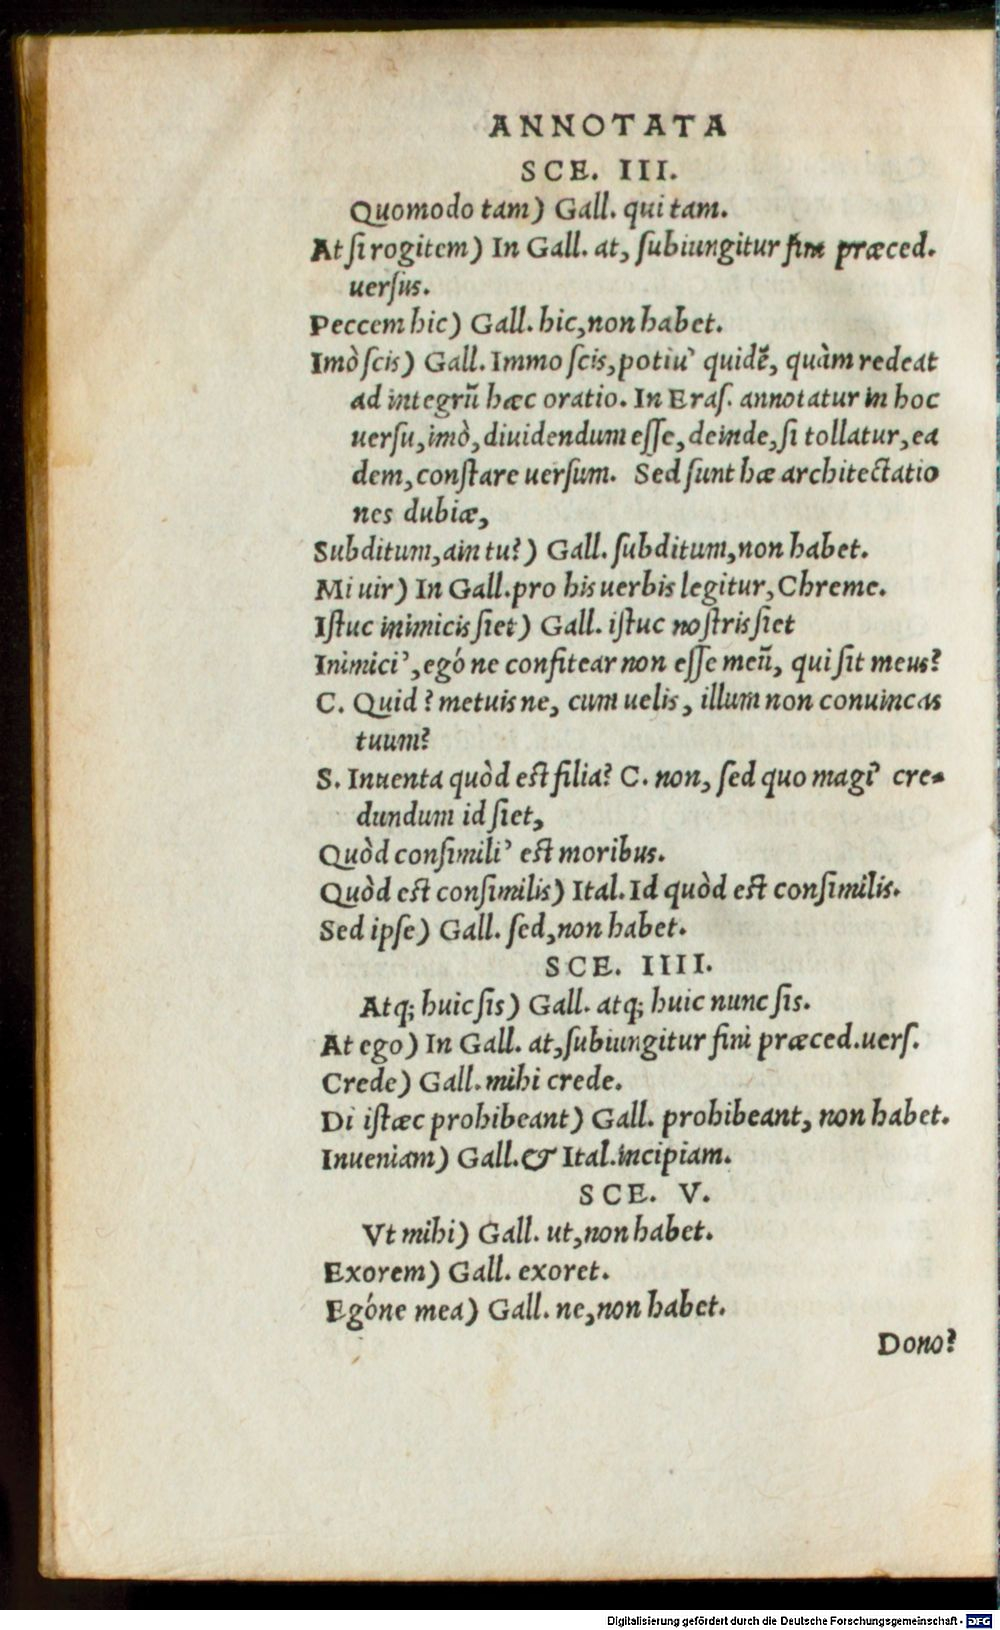 ANNOTATA
SCE. III.
Quomodo tam) Gall. qui tam.
At ſi rogitem) In Gall. at, ſubiungitur fini præced.
uerſus.
Peccem hic) Gall. hic, non habet.
Imò ſcis) Gall. Immo ſcis, potiu’ quidē, quàm redeat
ad integrū hæc oratio. In Eraſ. annotatur in hoc
uerſu, imò, diuidendum eſſe, deinde, ſi tollatur, ea
dem, conſtare uerſum. Sed ſunt hæ architectatio
nes dubiæ,
Subditum, ain tu?) Gall. ſubditum, non habet.
Mi uir) In Gall. pro his uerbis legitur, Chreme.
Iſtuc inimicis ſiet) Gall. iſtuc noſtris ſiet
Inimici’, egó ne confitear non eſſe meū, qui ſit meus?
C. Quid? metuis ne, cum uelis, illum non conuincas
tuum?
S. Inuenta quòd eſt filia? C. non, ſed quo magi’ cre-
dundum id ſiet,
Quòd conſimili’ eſt moribus.
Quòd eſt conſimilis) Ital. Id quòd eſt conſimilis.
Sed ipſe) Gall. ſed, non habet.
SCE. IIII.
Atq; huic ſis) Gall. atq; huic nunc ſis.
At ego) In Gall. at, ſubiungitur fini præced. uerſ.
Crede) Gall. mihi crede.
Di iſtæc prohibeant) Gall. prohibeant, non habet.
Inueniam) Gall. & Ital. incipiam.
SCE. V.
Vt mihi) Gall. ut, non habet.
Exorem) Gall. exoret.
Egóne mea) Gall. ne, non habet.
Dono?
Digitalisierung gefördert durch die Deutsche Forschungsgemeinschaft - DFG